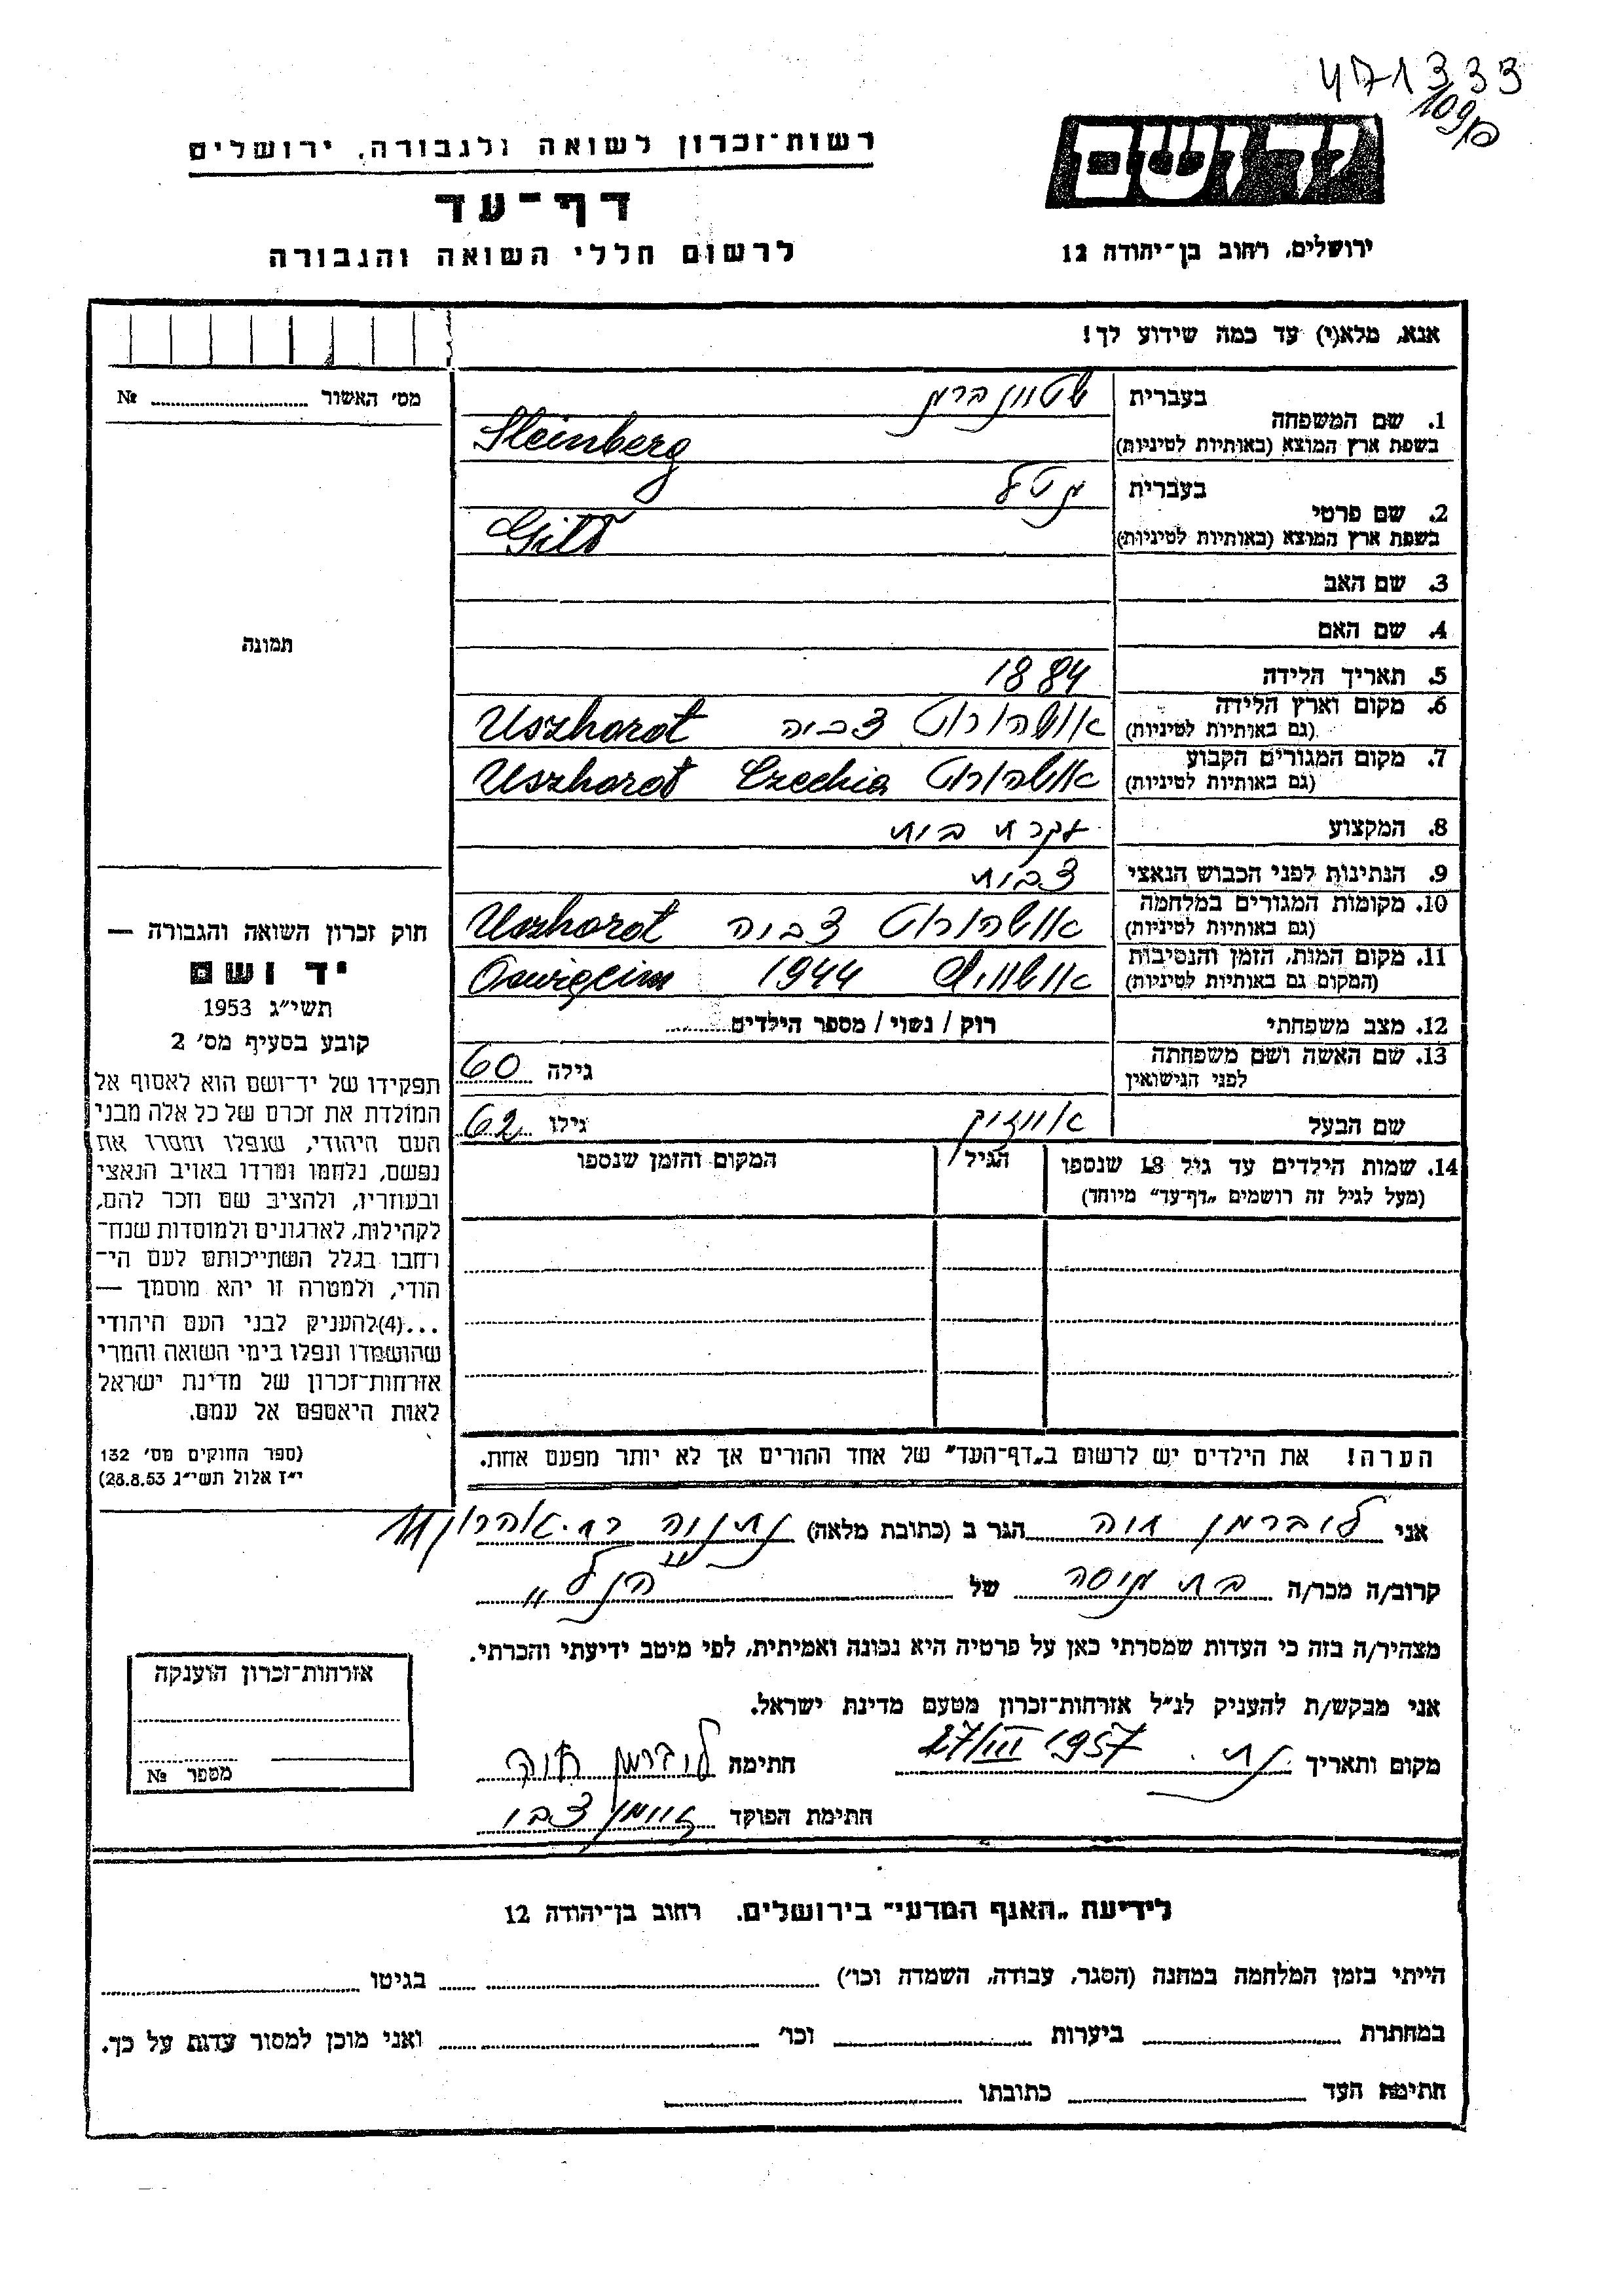 471333
109/ם
רשות־זכרון לשואה ולגבורה, ירושלים
דף־עד
לרשום חללי השואה והגבורה
ידושם
ירושלים, רחוב בן־יהודה 12
אנא, מלא(י) עד כמה שידוע לך!
מס' האשור № 
1. שם המשפחה בעברית שטיינברג
בשפת ארץ המוצא (באותיות לטיניות) Steinberg
2. שם פרטי בעברית גיטל
בשפת ארץ המוצא (באותיות לטיניות)
3. שם האב
4. שם האם
5. תאריך הלידה 1884
6. מקום וארץ הלידה אוזהורוט צכיה Uszhorot
(גם באותיות לטיניות)
7. מקום המגורים הקבוע אוזהורוט Czechia Uszhorot
(גם באותיות לטיניות)
8. המקצוע עקרת בית
9. הנתינות לפני הכבוש הנאצי צכית
10. מקומות המגורים במלחמה אוזהורוט צכיה Uszhorot
(גם באותיות לטיניות)
11. מקום המות, הזמן והנסיבות 1944
(המקום גם באותיות לטיניות)
12. מצב משפחתי רוק / נשוי / מספר הילדים
13. שם האשה ושם משפחתה לפני הנישואין גילה 60
שם הבעל אייזיק גילו 62
14. שמות הילדים עד גיל 18 שנספו הגיל המקום והזמן שנספו
(מעל לגיל זה רושמים „דף־עד” מיוחד)
תמונה
חוק זכרון השואה והגבורה —
יד ושם
תשי״ג 1953
קובע בסעיף מס' 2
תפקידו של יד־ושם הוא לאסוף אל
המולדת את זכרם של כל אלה מבני
העם היהודי, שנפלו ומסרו את
נפשם, נלחמו ומרדו באויב הנאצי
ובעוזריו, ולהציב שם וזכר להם,
לקהילות, לארגונים ולמוסדות שנח־
רבו בגלל השתייכותם לעם הי־
הודי, ולמטרה זו יהא מוסמך —
...(4) להעניק לבני העם היהודי
שהושמדו ונפלו בימי השואה והמרי
אזרחות־זכרון של מדינת ישראל
לאות היאספם אל עמם.
(ספר החוקים מס' 132
י״ז אלול תשי״ג 28.8.53)
הערה! את הילדים יש לרשום ב„דף־העד” של אחד ההורים אך לא יותר מפעם אחת.
אני ליברמן חוה הגר ב (כתובת מלאה) נתניה
קרוב/ה מכר/ה בת גיסה של הנ״ל
מצהיר/ה בזה כי העדות שמסרתי כאן על פרטיה היא נכונה ואמיתית, לפי מיטב ידיעתי והכרתי.
אני מבקש/ת להעניק לנ״ל אזרחות־זכרון מטעם מדינת ישראל.
מקום ותאריך נת. 27/III 1957 חתימה ליברמן חוה
חתימת הפוקד זיימן צבי
אזרחות־זכרון הוענקה
מספר №
לידיעת „האגף המדעי” בירושלים. רחוב בן־יהודה 12
הייתי בזמן המלחמה במחנה (הסגר, עבודה, השמדה וכו') בגיטו
במחתרת ביערות וכו' ואני מוכן למסור עדות על כך.
חתימת העד כתובתו